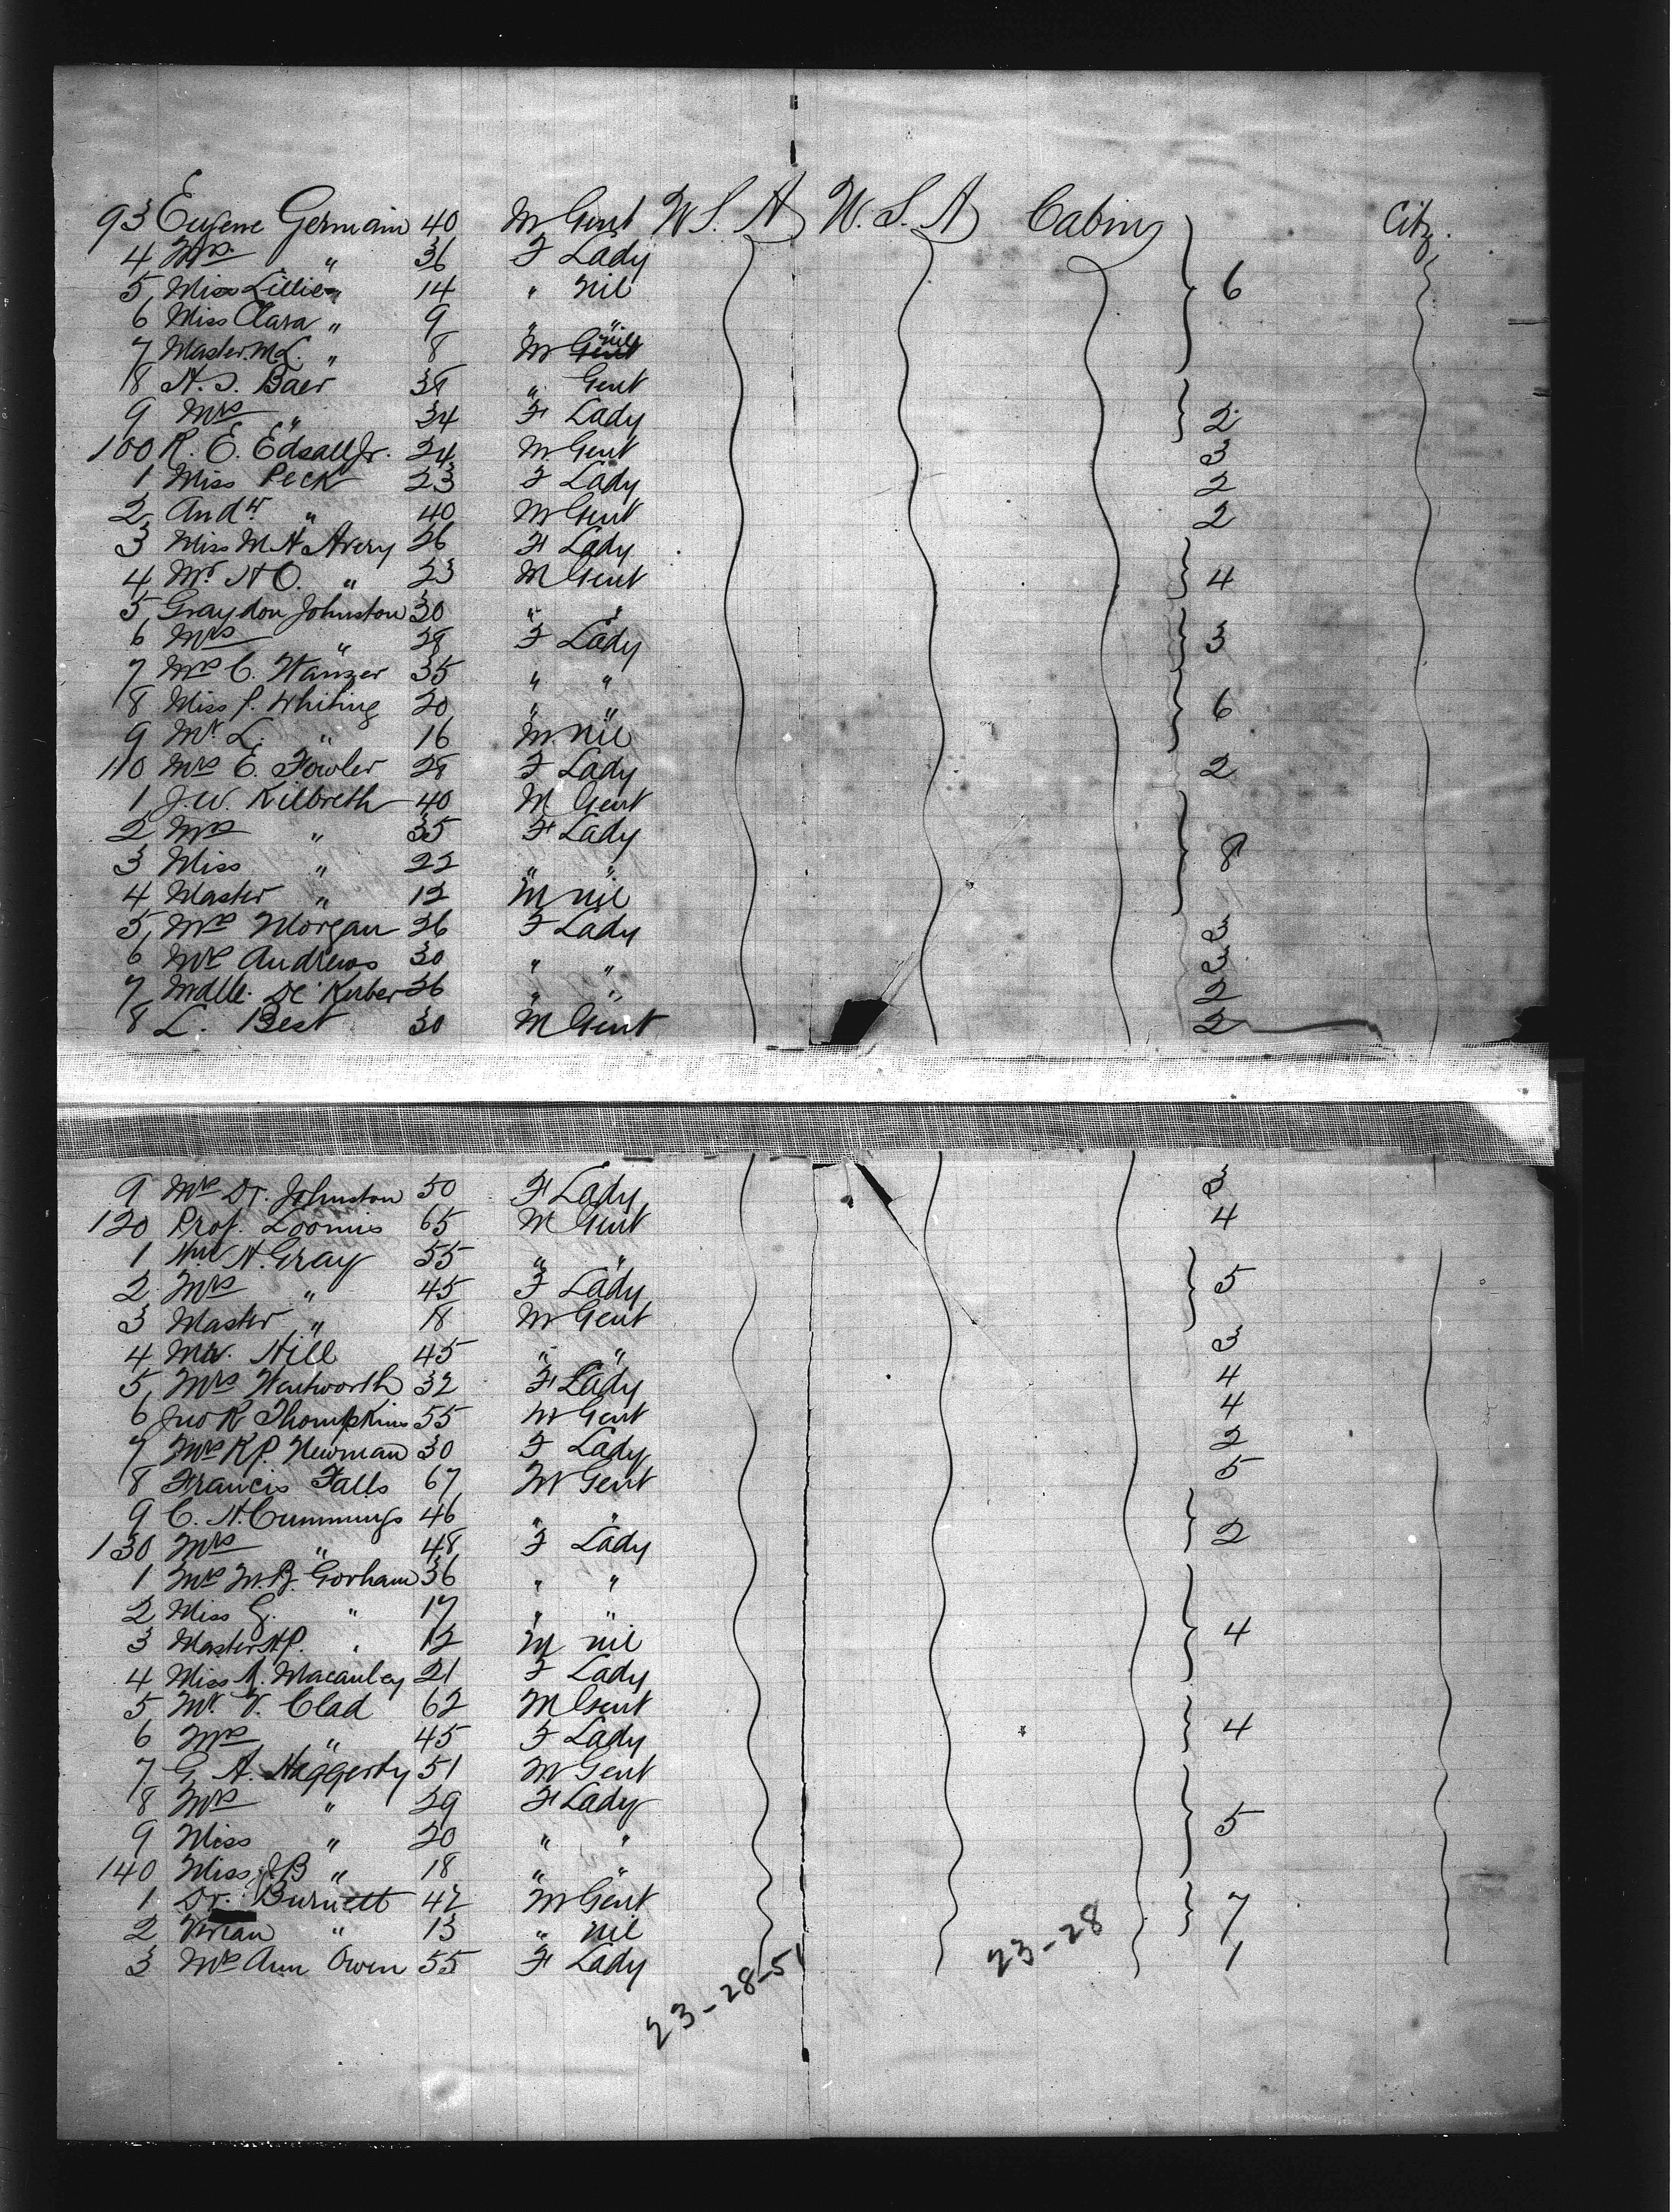 93 Eugene Germain 40 M Gent U.S.A U.S.A Cabin Citz.
4 Mrs. " 36 F Lady
5 Miss Lillie " 14 " nil 6
6 Miss Clara " 9 " "
7 Master M.L. " 8 M nil
8 A.S. Baer 38 " Gent
9 Mrs " 34 F Lady 2
100 R. E. Edsall Jr. 24 M Gent 3
1 Miss Peck 23 F Lady 2
2 Andw " 40 M Gent 2
3 Miss M A Avery 26 F Lady
4 Mr H O. " 23 M Gent 4
5 Graydon Johnston 30 " "
6 Mrs " 28 F Lady 3
7 Mrs C. Wanzer 35 " "
8 Miss J. Whiting 20 " " 6
9 Mr L. " 16 M nil
110 Mrs E. Fowler 28 F Lady 2
1 J.W. Kilbreth 40 M Gent
2 Mrs " 35 F Lady
3 Miss " 22 " " 8
4 Master " 12 M nil
5 Mrs Morgan 36 F Lady 2
6 Mrs Andrews 30 " " 2
7 Mdlle. De Kerber 36 " " 2
8 L. Best 30 M Gent 2
9 Mrs Dr. Johnston 50 F Lady 3
120 Prof. Loomis 65 M Gent 4
1 Wm H. Gray 55 " "
2 Mrs " 45 F Lady 5
3 Master " 18 M Gent
4 Mr. Hill 45 " " 3
5 Mrs Wentworth 32 F Lady 4
6 Jno R Thompkins 55 M Gent 4
7 Mrs R.P. Newman 30 F Lady 2
8 Francis Falls 67 M Gent 5
9 C. H. Cummings 46 " "
130 Mrs " 48 F Lady 2
1 Mrs M.B. Gorham 36 " "
2 Miss G. " 17 " "
3 Master H.P. " 12 M nil 4
4 Miss A. Macauley 21 F Lady
5 Mr. V. Clad 62 M Gent
6 Mrs " 45 F Lady 4
7 G. A. Haggerty 51 M Gent
8 Mrs " 29 F Lady
9 Miss " 20 " " 5
140 Miss J B " 18 " "
1 Dr. Burnett 42 M Gent 7
2 Vivian " 13 " nil
3 Mrs Ann Owen 55 F Lady 1
23-28-51 23-28